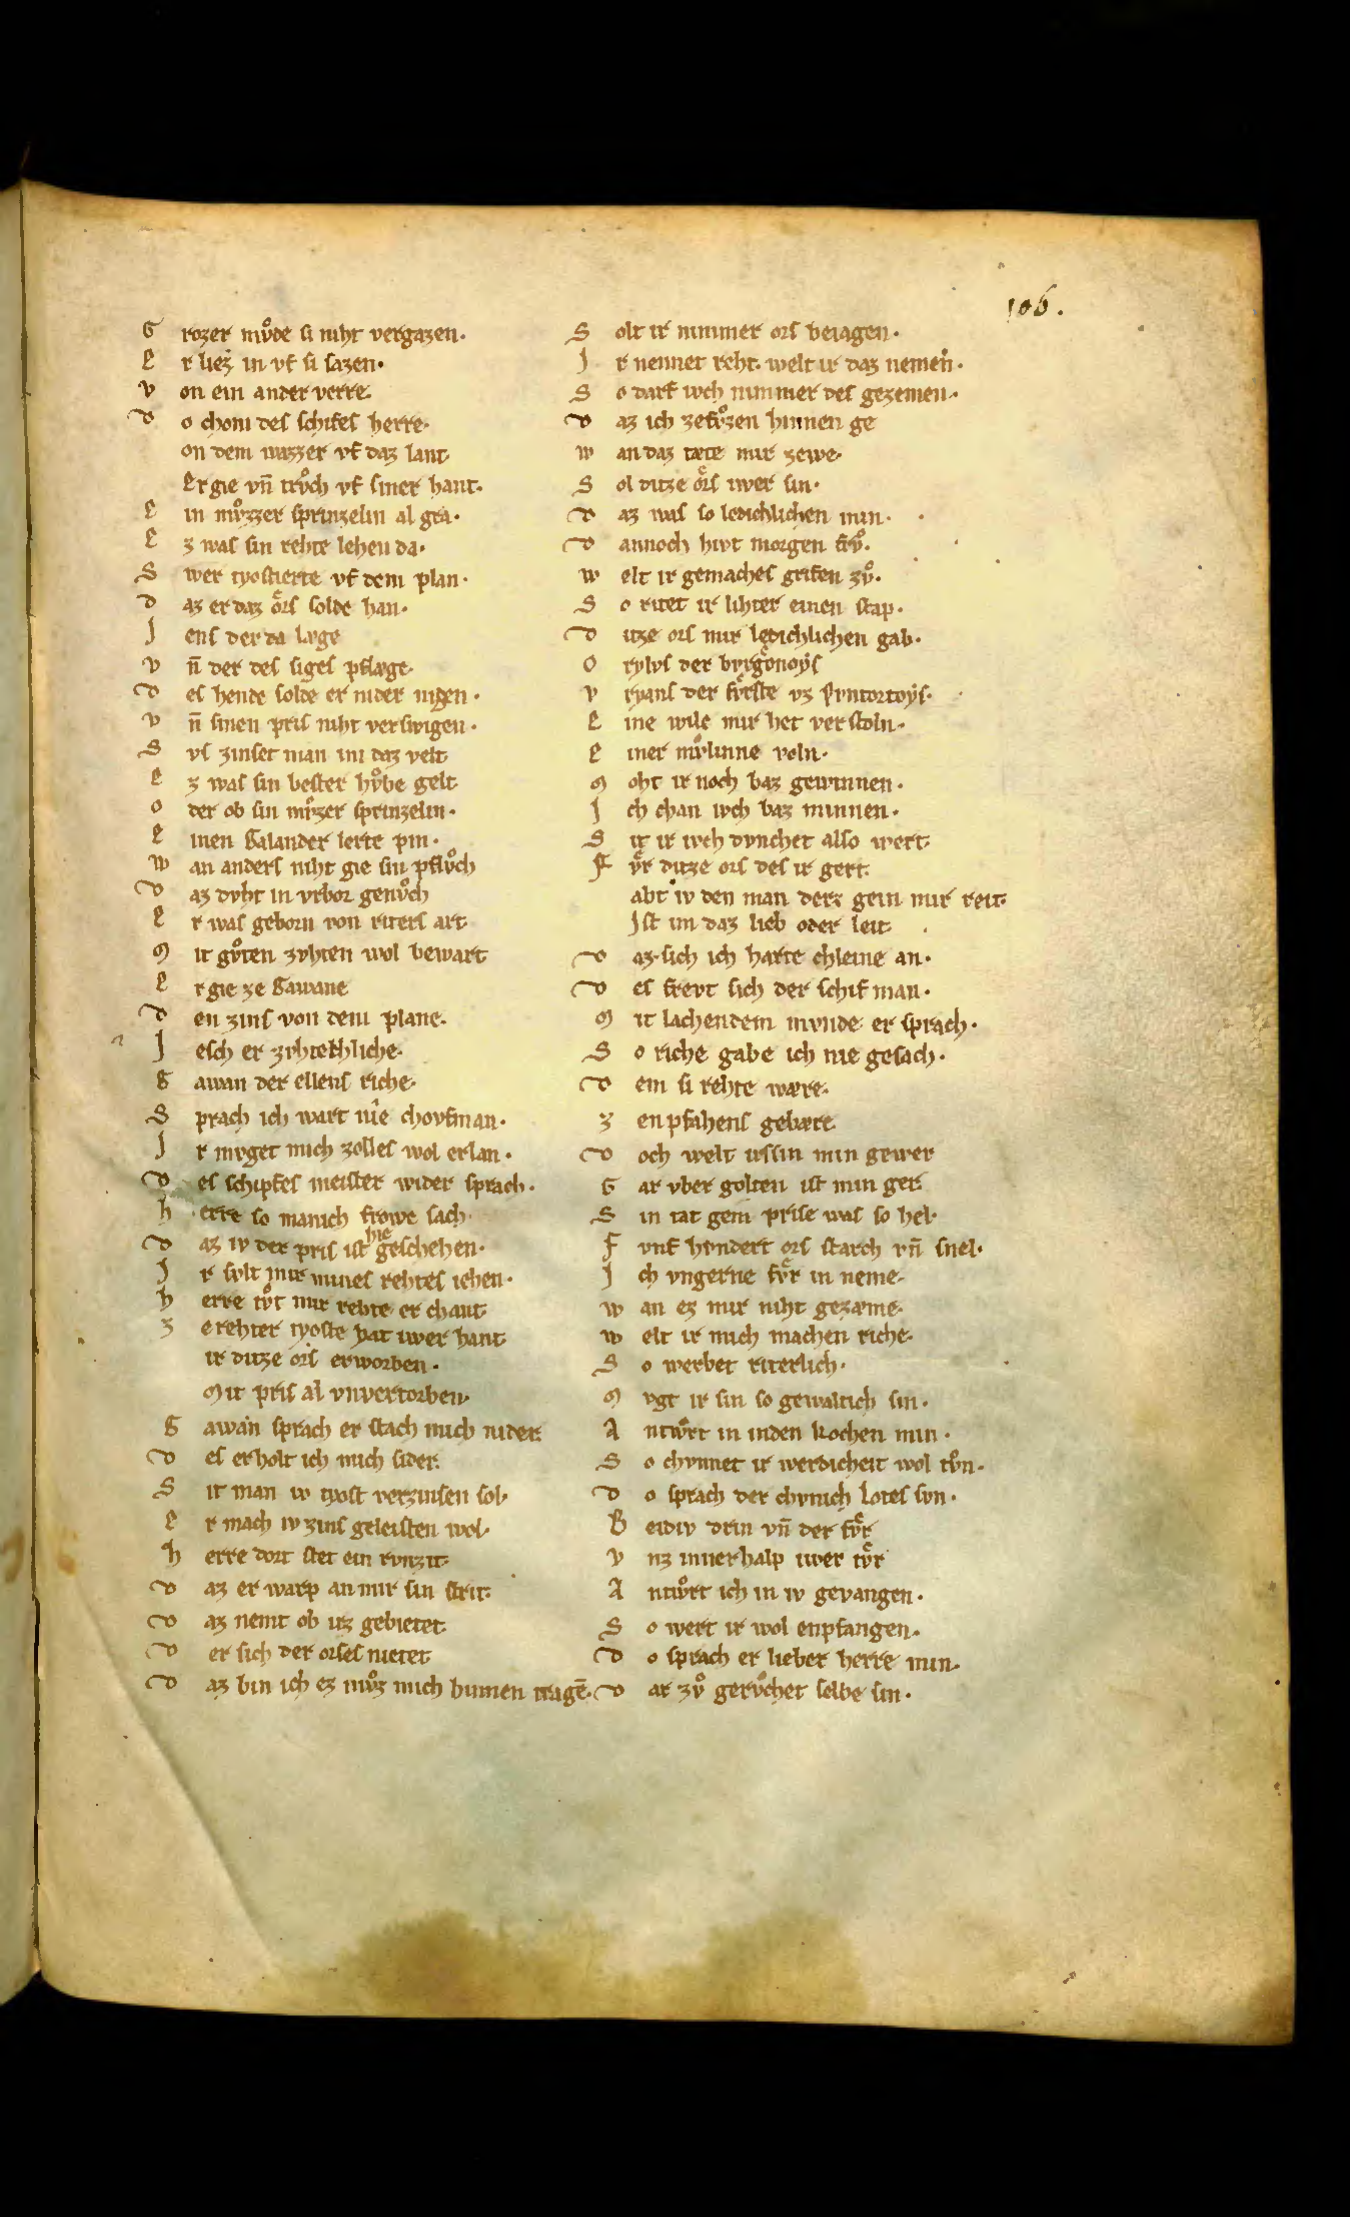 106.
G rozer mvͦde si niht vergazen.
E r liez in vf si sazen.
v on ein ander verre.
D o chom des schifes herre.
on dem wazzer vf daz lant.
Er gie vn̄ trvͦch vf siner hant.
E in mvͦzzer sprinzelin al gra.
E z was sin rehte lehen da.
S wer tyostierte vf dem plan.
D az er daz oͤrs solde han.
J ens der da læge
v n̄ der des siges pflæge.
D es hende solde er nider nigen.
v n̄ sinen pris niht verswigen.
S vs zinset man im daz velt
E z was sin bester hvͦbe gelt
o der ob sin mvͦzer sprinzelin.
E inen Galander lerte pin.
w an anders niht gie sin pflvͦch
D az dvht in vrbor genvͦch
E r was geborn von riters art
M it gvͦten zvhten wol bewart
E r gie ze Gawane
D en zins von dem plane.
J esch er zvhtechliche.
G awan der ellens riche.
S prach ich wart nie chovfman.
J r mvget mich zolles wol erlan.
D es schiffes meister wider sprach.
h erre so manich frowe sach.
D az iv der pris ist hie geschehen.
J r svlt mir mines rehtes iehen.
h erre tvͦt mir rehte er chant
Z e rehter tyoste hat iwer hant
ir ditze ors erworben.
Mit pris al vnvertorben.
G awan sprach er stach mich nider.
D es erholt ich mich sider.
S it man iv tyost verzinsen sol.
E r mach iv zins geleisten wol.
h erre dort stet ein rvnzit.
D az er warp an mir sin strit.
D az nemt ob irz gebietet.
D er sich der orses nietet
D az bin ich ez mvͦz mich hinnen tragē.
S olt ir nimmer ors beiagen.
J r nennet reht. welt ir daz nemen.
S o darf ivch nimmer des gezemen.
D az ich zefvͦzen hinnen ge
w an daz tæte mir zewe.
S ol ditze oͤrs iwer sin.
D az was so ledichlichen min.
D annoch hivt morgen frvͦ.
w elt ir gemaches grifen zvͦ.
S o ritet ir lihter einen stap.
D itze ors mir ledichlichen gab.
O rylvs der bvrgonoys
v ryans der fvͤrste vz Pvntortoys.
E ine wile mir het verstoln.
E iner mvͤlinne voln.
M oht ir noch baz gewinnen.
J ch chan ivch baz minnen.
S it ir ivch dvnchet also wert.
F vͤr ditze ors des ir gert.
abt iv den man derz gein mir reit.
Jst im daz lieb oder leit
D az sich ich harte chleine an.
D es frevt sich der schif man.
M it lachendem mvnde er sprach.
S o riche gabe ich nie gesach.
D em si rehte wære.
Z enpfahens gebære.
D och welt irs sin min gewer
G ar vber golten ist min ger.
S in tat gem prise was so hel.
F vnf hvndert ors starch vn̄ snel.
J ch vngerne fvͤr in neme.
w an ez mir niht gezæme.
w elt ir mich machen riche.
S o werbet riterlich.
M vgt ir sin so gewaltich sin.
A ntwͤrt in inden kochen min.
S o chvnnet ir werdicheit wol tvͦn.
D o sprach der chvnich Lotes svn.
B eidiv drin vn̄ der fvͤr
v nz innerhalp iwer tvͤr
A ntwͤrt ich in iv gevangen.
S o wert ir wol enpfangen.
D o sprach er lieber herre min.
D ar zvͦ gervͦchet selbe sin.